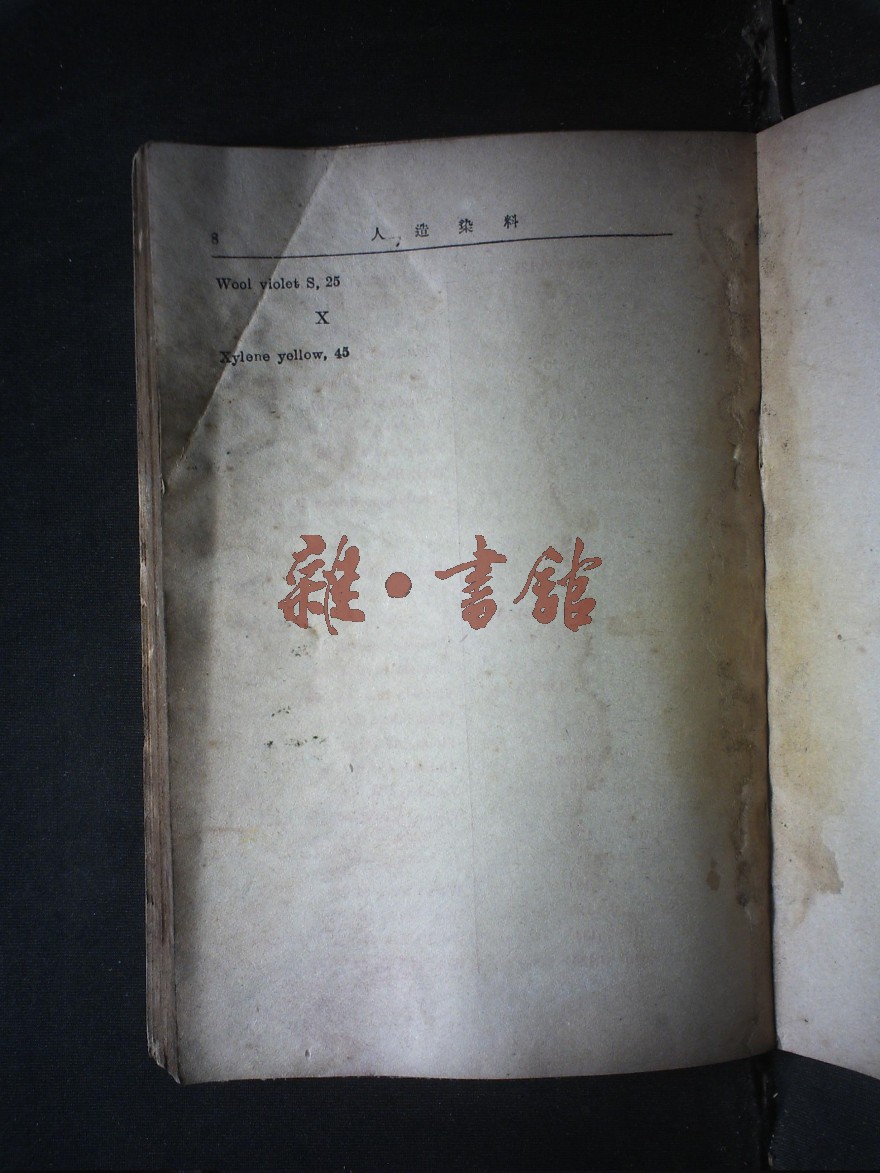 8 人造染料
Wool violet S, 25
X
Xylene yellow, 45
雜·書館